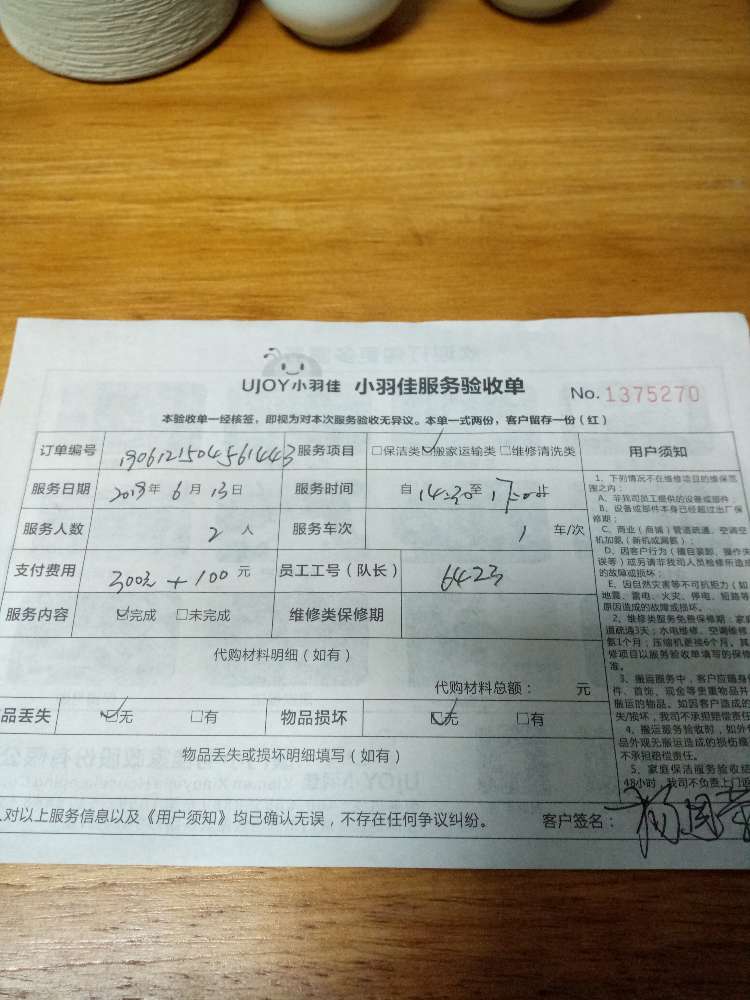 UJOY小羽佳 小羽佳服务验收单 No. 1375270
本验收单一经核签，即视为对本次服务验收无异议。本单一式两份，客户留存一份（红）
订单编号 1906121504561443 服务项目 □保洁类 ☑搬家运输类 □维修清洗类 用户须知
服务日期 2019年 6月 13日 服务时间 自 14:30 至 17:00 止
服务人数 2 人 服务车次 1 车/次
支付费用 300元 + 100 元 员工工号（队长） 6423
服务内容 ☑完成 □未完成 维修类保修期
代购材料明细（如有）
代购材料总额： 元
品丢失 ☑无 □有 物品损坏 ☑无 □有
物品丢失或损坏明细填写（如有）
对以上服务信息以及《用户须知》均已确认无误，不存在任何争议纠纷。 客户签名：
1、下列情况不在维修项目的维保范
围之内：
A、非我司员工提供的设备或部件；
B、设备或部件本身已经超过出厂保
修期；
C、商业（商铺）管道疏通、空调空
机加氨（新机或漏氨）；
D、因客户行为（擅自装卸、操作失
误等）或另请非我司人员检修所造成
的故障或损坏；
E、因自然灾害等不可抗拒力（如
地震、雷电、火灾、停电、短路等
原因造成的故障或损坏。
2、维修类服务免费保修期：家庭
道疏通3天；水电维修、空调维修
氨1个月；压缩机更换6个月。其
修项目以服务验收单填写的保修
准。
3、搬运服务中，客户应随身
件、首饰、现金等贵重物品并
搬运的物品。如因客户造成的
失/损坏，我司不承担赔偿责任
4、搬运服务验收时，如外
品外观无搬运造成的损伤痕
不承担赔偿责任。
5、家庭保洁服务验收结
48小时，我司不负责上门返